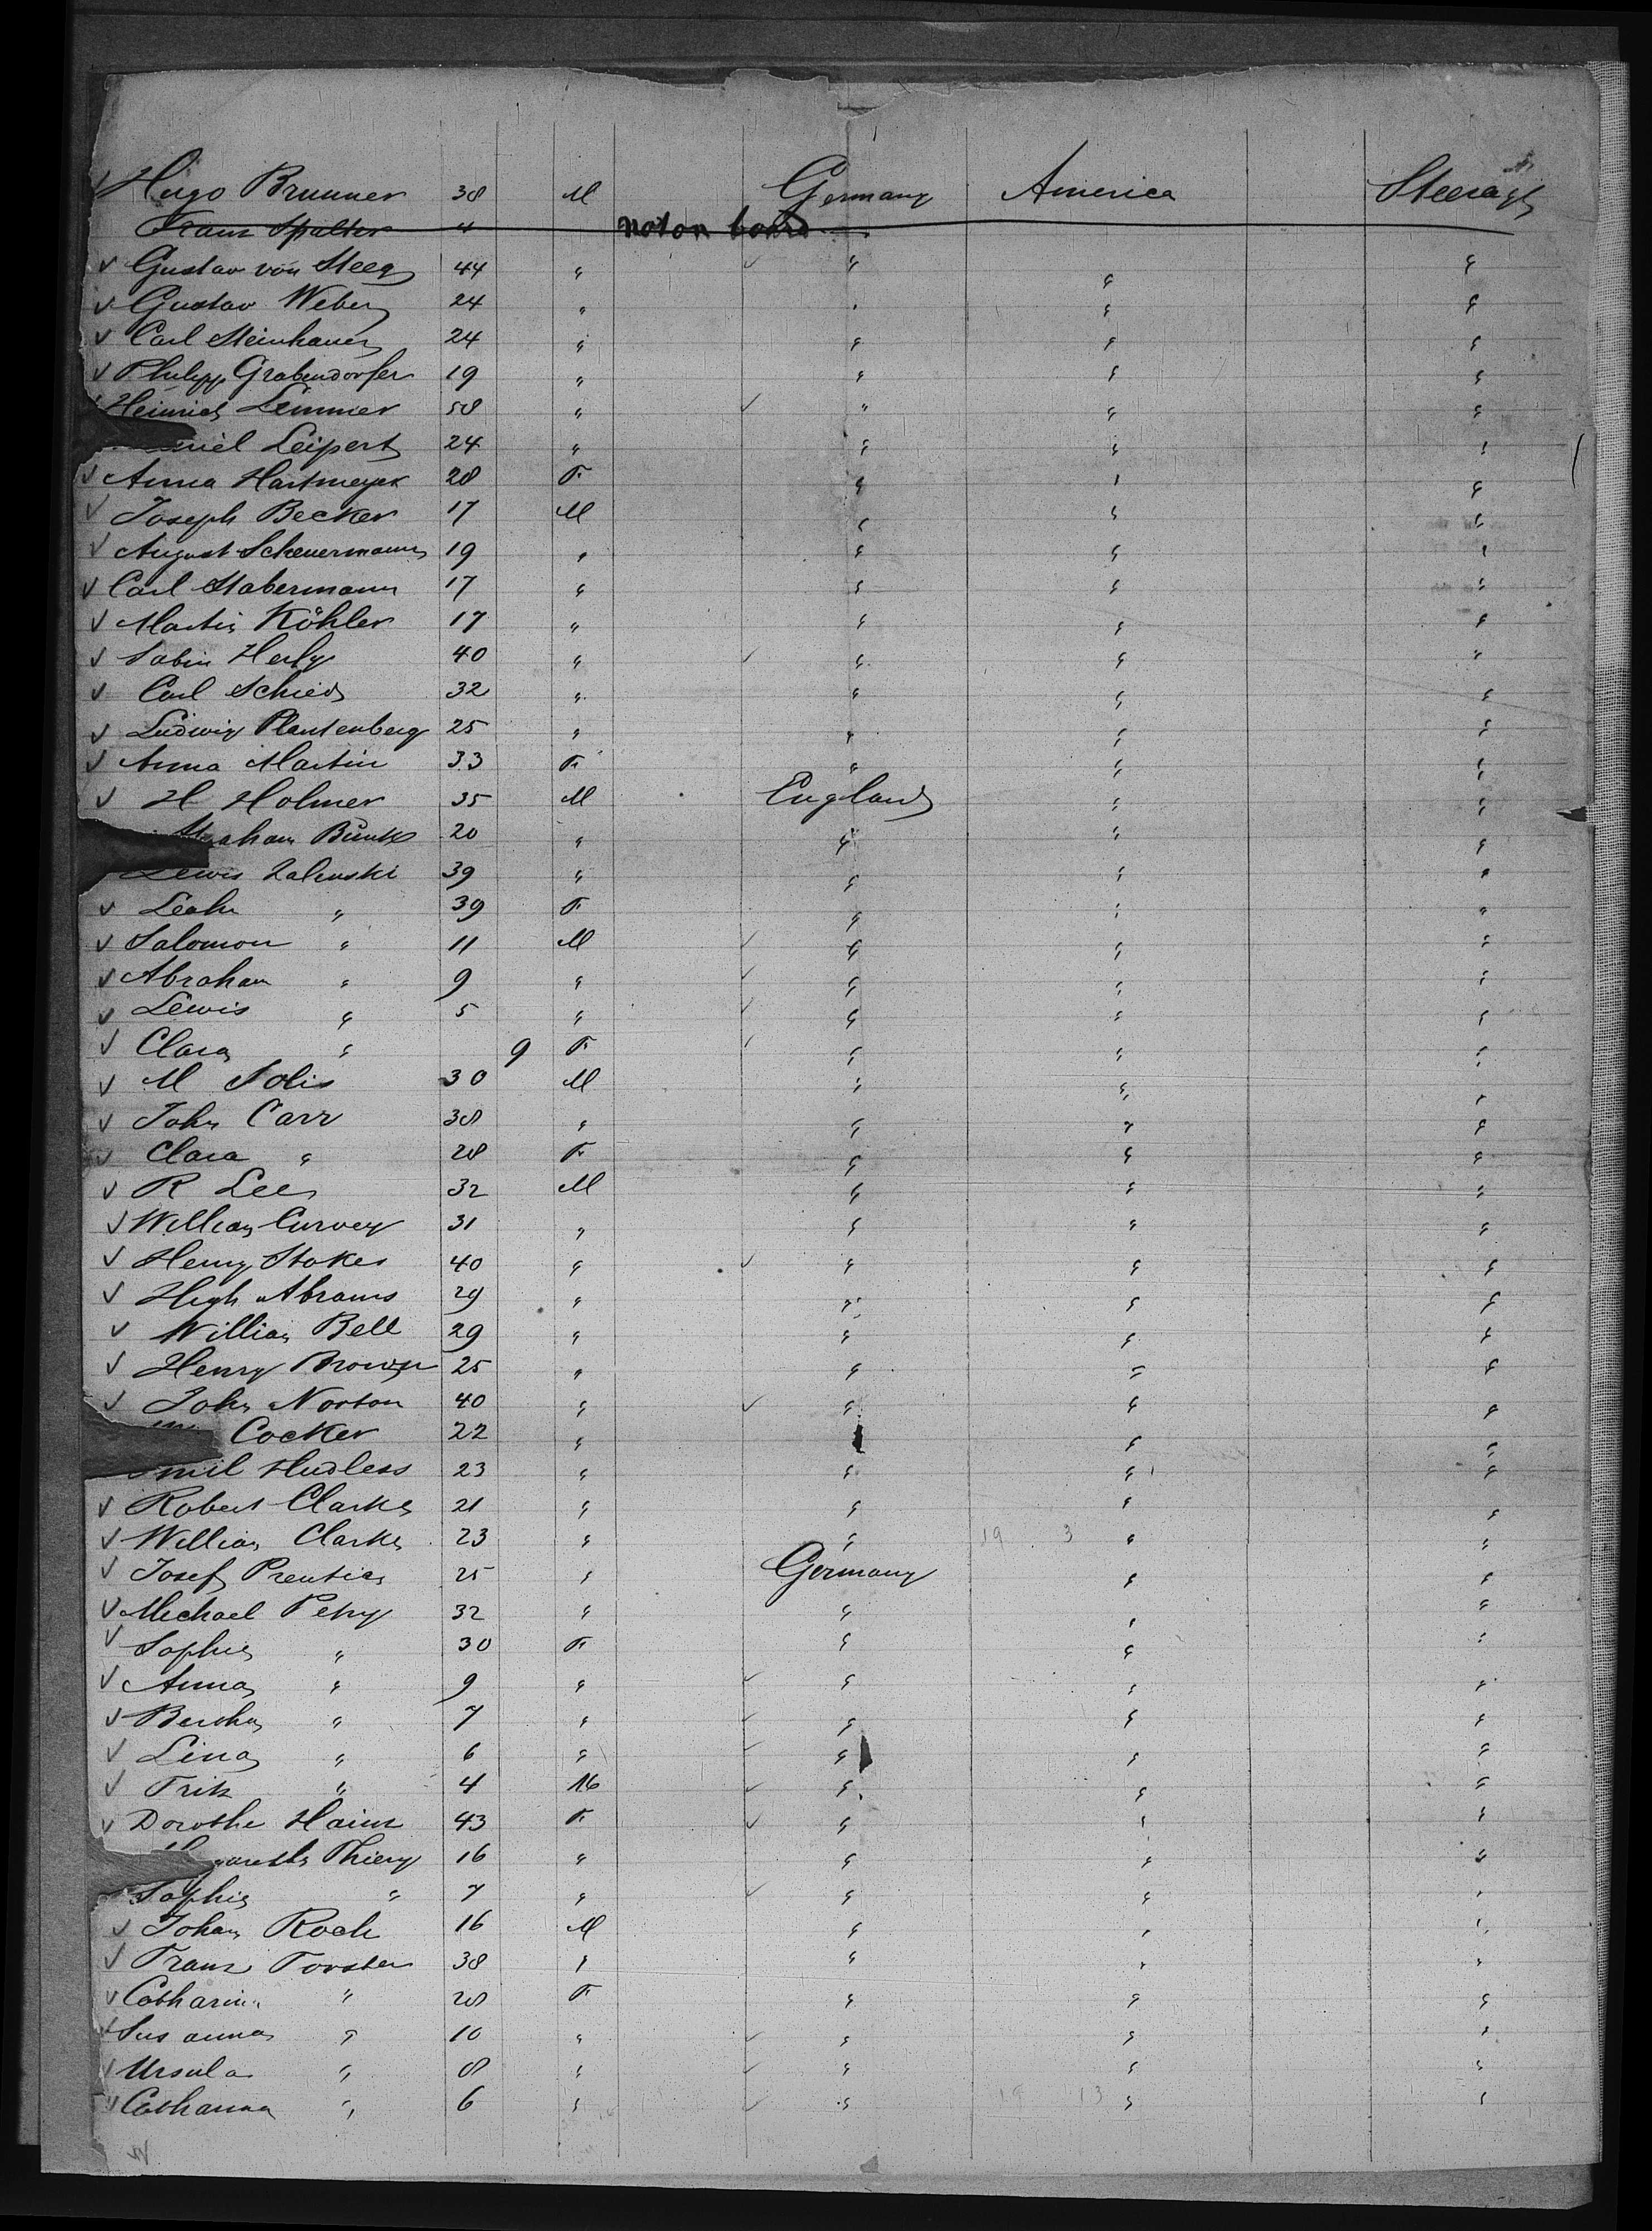 Hugo Brunner 38 M Germany America Steerage
Franz Spalter 4 not on board
✓ Gustav von Steeg 44 " ✓ " " "
✓ Gustav Weber 24 " " " "
✓ Carl Steinhauer 24 " " " "
✓ Philipp Grabendorfer 19 " " " "
Heinrich Lemmer 58 " ✓ " " "
Leipert 24 " " " "
✓ Anna Hartmeyer 28 F " " "
✓ Joseph Becker 17 M " " "
✓ August Scheuermann 19 " " " "
✓ Carl Habermann 17 " " " "
✓ Martin Köhler 17 " " " "
✓ 40 " ✓ " " "
✓ Carl Schied 32 " " " "
✓ Ludwig Plantenberg 25 " " " "
✓ Anna Martin 33 F " " "
✓ H Holmer 35 M England " "
20 " " " "
Lewis Zalenski 39 " " " "
✓ Leah " 39 F " " "
✓ Salomon " 11 M ✓ " " "
✓ Abraham " 9 " ✓ " " "
✓ Lewis " 5 " ✓ " " "
✓ Clara " 9 F ✓ " " "
✓ M Solis 30 M " " "
✓ John Carr 38 " " " "
✓ Clara " 28 F " " "
✓ R Lee 32 M " " "
✓ William Curvey 31 " " " "
✓ Henry Stokes 40 " ✓ " " "
✓ Hugh Abrams 29 " " " "
✓ William Bell 29 " " " "
✓ Henry Brown 25 " " " "
✓ John Norton 40 " ✓ " " "
Cocker 22 " " " "
Hudless 23 " " " "
✓ Robert Clarke 21 " " " "
✓ William Clarke 23 " " 19 3 " "
✓ Josef Prentice 25 " Germany " "
✓ Michael Petry 32 " " " "
✓ Sophie " 30 F " " "
✓ Anna " 9 " ✓ " " "
✓ Bertha " 7 " ✓ " " "
✓ Lina " 6 " ✓ " " "
✓ Fritz " 4 M ✓ " " "
✓ Dorothe Hainz 43 F ✓ " " "
Thiery 16 " " " "
Sophie " 7 " ✓ " " "
✓ Johan Roch 16 M " " "
✓ Franz Forster 38 " " " "
✓ Catharina " 28 F " " "
✓ Susanna " 10 " ✓ " " "
✓ Ursula " 8 " ✓ " " "
✓ Catharina " 6 " ✓ " " "